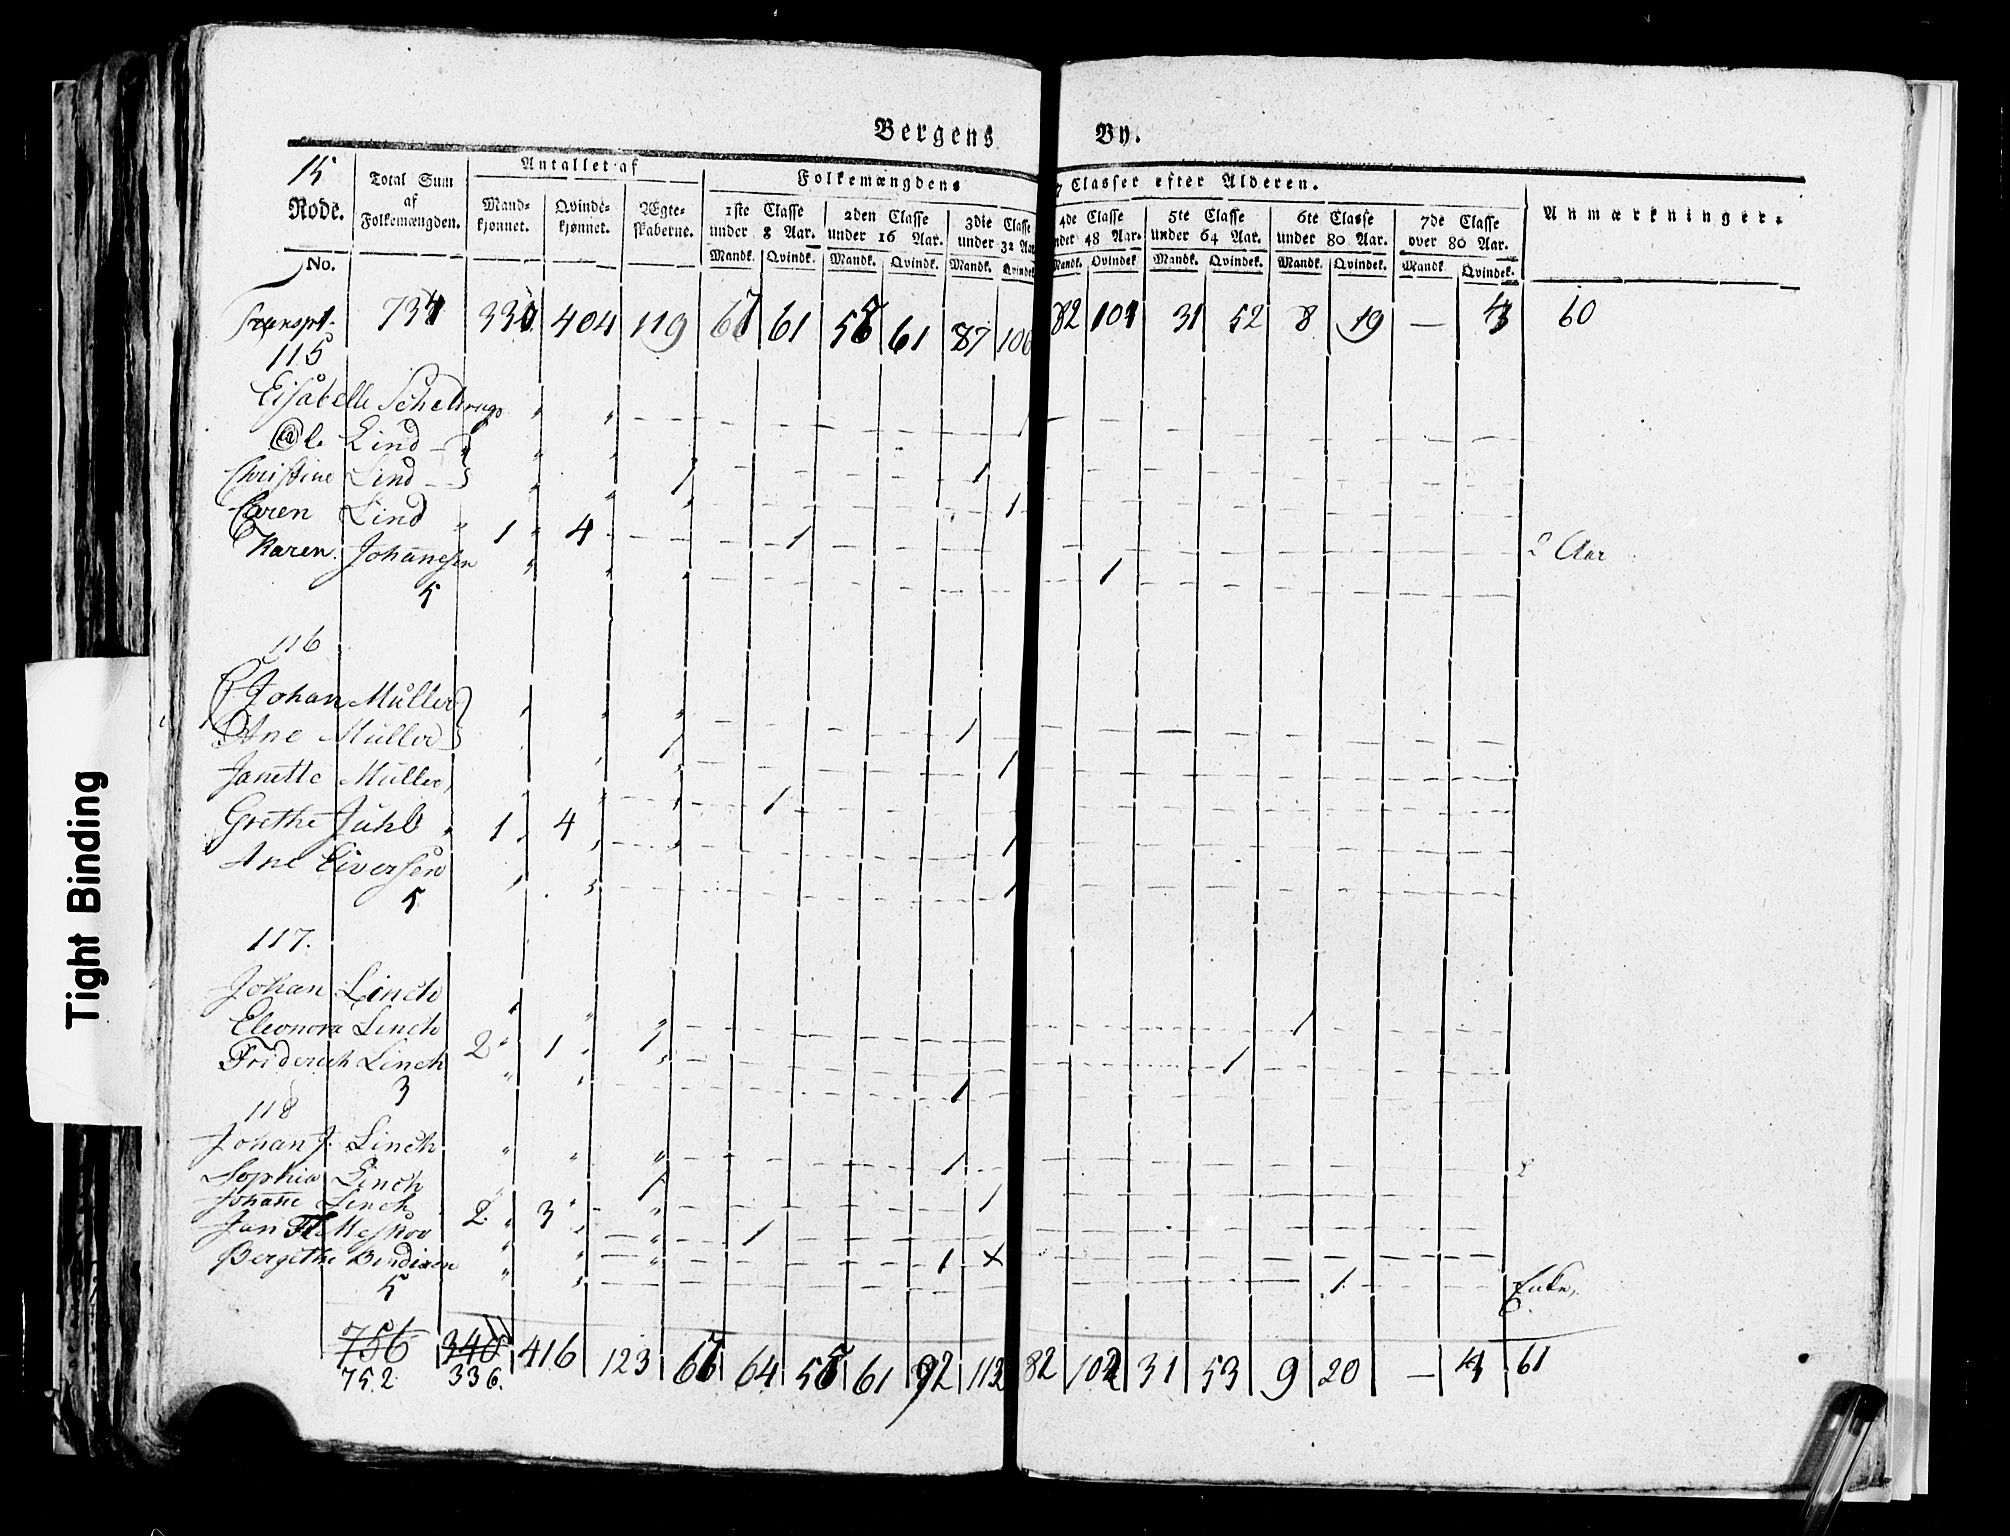 Bergens By.
15 Rode.
Total Sum af Folkemængden.
Antallet af
Mandkjønnet. Qvindekjønnet. Ægteskaberne.
Folkemængdens 7 Classer efter Alderen.
1ste Classe under 8 Aar. 2den Classe under 16 Aar. 3die Classe under 32 Aar 4de Classe under 48 Aar. 5te Classe under 64 Aar. 6te Classe under 80 Aar. 7de Classe over 80 Aar.
Anmærkninger.
No. Mandk. Qvindk. Mandk. Qvindk. Mandk. Qvindek. Mandk. Qvindek Mandk. Qvindek. Mandk. Qvindek. Mandk Qvindek.
Transpt. 734 330 404 119 67 61 58 61 87 106 82 101 31 52 8 19 — 4 60
115
Ole Lind
Christine Lind 1 1
Caren Lind 1 4 1 1
Karen Johannesen 2 Aar
1
5
116
Johan Müller
Ane Müller 1 1
Janette Müller 1
1
Grethe Juhl 1 4 1
Ane Eiversen 1
5
117.
Johan Linch
Eleonora Linch 1
Friderich Linch 2 1 1 1
3 1
118
Johan J. Linch 1
Sophia Linch 1 1
Johane Linch 2 3
Jan 1
Bergithe Bendixen 1 x
5 1 Enke,
756 340 416 123 67 64 58 61 92 112 82 102 31 53 9 20 — 4 61
752 336.
Tight Binding